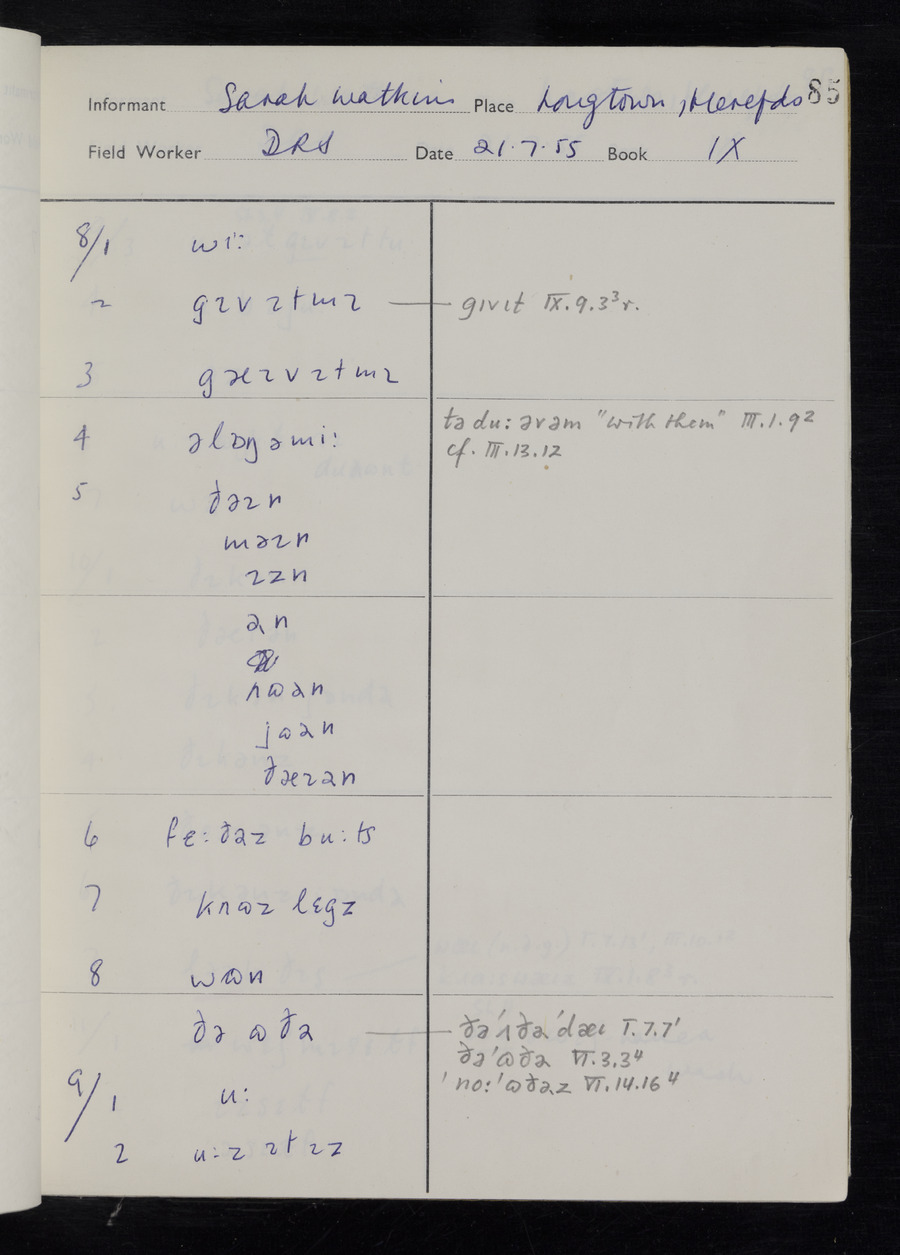 85
Informant Sarah Watkins Place Longtown, Herefds
Field Worker DRS Date 21.7.55 Book IX
8/1 wi:
2 gɪv ɪt mɪ — gɪvɪt IX.9.3³r.
3 gæɪv ɪt mɪ
4 əlɒŋ ə mi: tə du: əvəm "with them" III.1.9²
cf. III.13.12
5 ðəɪn
məɪn
ɪzn
ən
ʌɷən
jɷən
ðæɪən
6 fɛ:ðəz bu:ts
7 knɷz lɛgz
8 wɷn
ðə ɷðə — ðə'ʌðə'dæɪ I.7.7¹
ðə'ɷðə VI.3.3⁴
'no:'ɷðəz VI.14.16⁴
9/1 u:
2 u:z ɪt ɪz